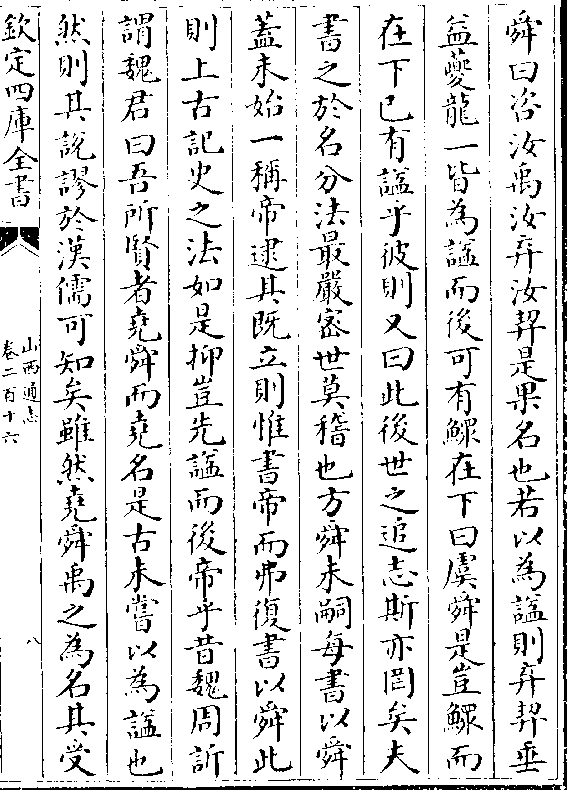 舜曰咨汝禹汝弃汝契是果名也若以為諡則弃契垂
益夔龍一皆為諡而後可有鰥在下曰虞舜是豈鰥而
在下已有諡乎彼則又曰此後世之追志斯亦罔矣夫
書之於名分法最嚴密世莫稽也方舜未嗣每書以舜
蓋未始一稱帝逮其既立則惟書帝而弗復書以舜此
則上古記史之法如是抑豈先諡而後帝乎昔魏周訢
謂魏君曰吾所賢者堯舜而堯名是古未嘗以為諡也
然則其說謬於漢儒可知矣雖然堯舜禹之為名其受
欽定四庫全書
山西通志
卷二百十六
八